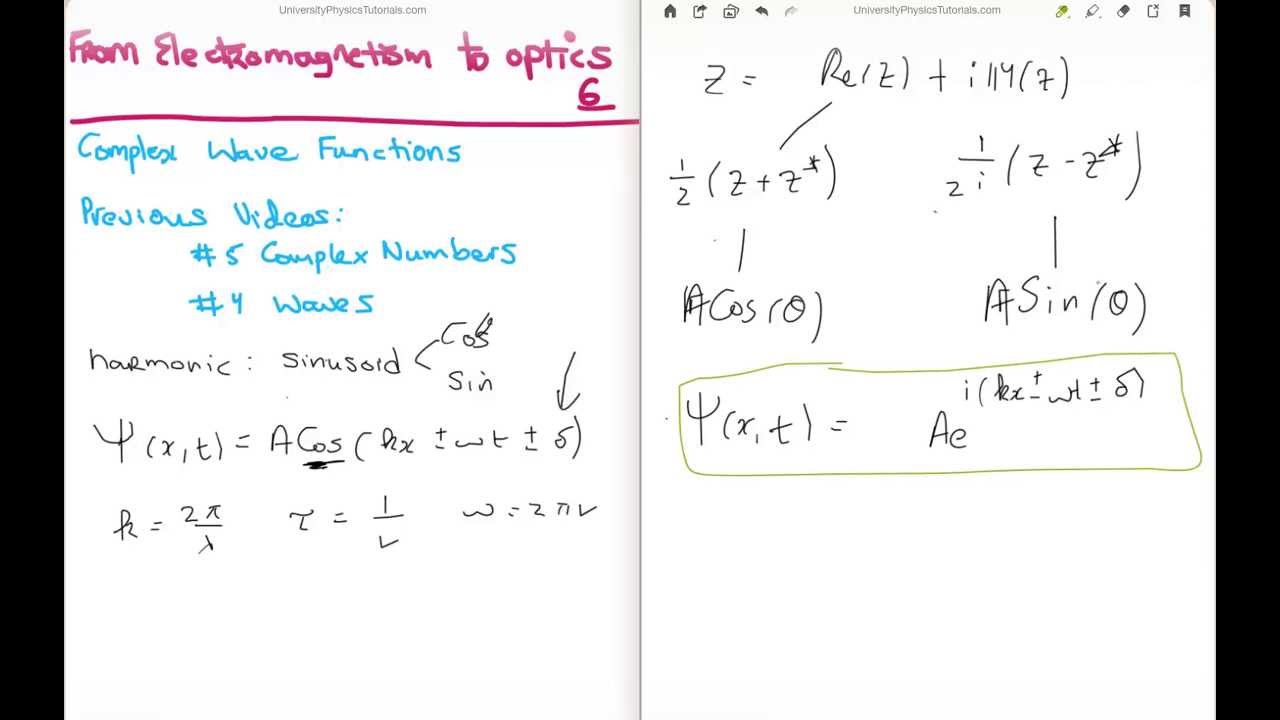 UniversityPhysicsTutorials.com
From Electromagnetism to optics
6
Complex Wave Functions
Previous Videos:
#5 Complex Numbers
#4 Waves
harmonic: sinusoid
Cos
Sin
Ψ(x,t) = A Cos(kx ± ωt ± δ)
k = 2π/λ τ = 1/ν ω = 2πν
UniversityPhysicsTutorials.com
z = Re(z) + i IM(z)
1/2 (z + z*) 1/2i (z - z*)
A Cos(θ) A Sin(θ)
Ψ(x,t) = Ae^i(kx ± ωt ± δ)